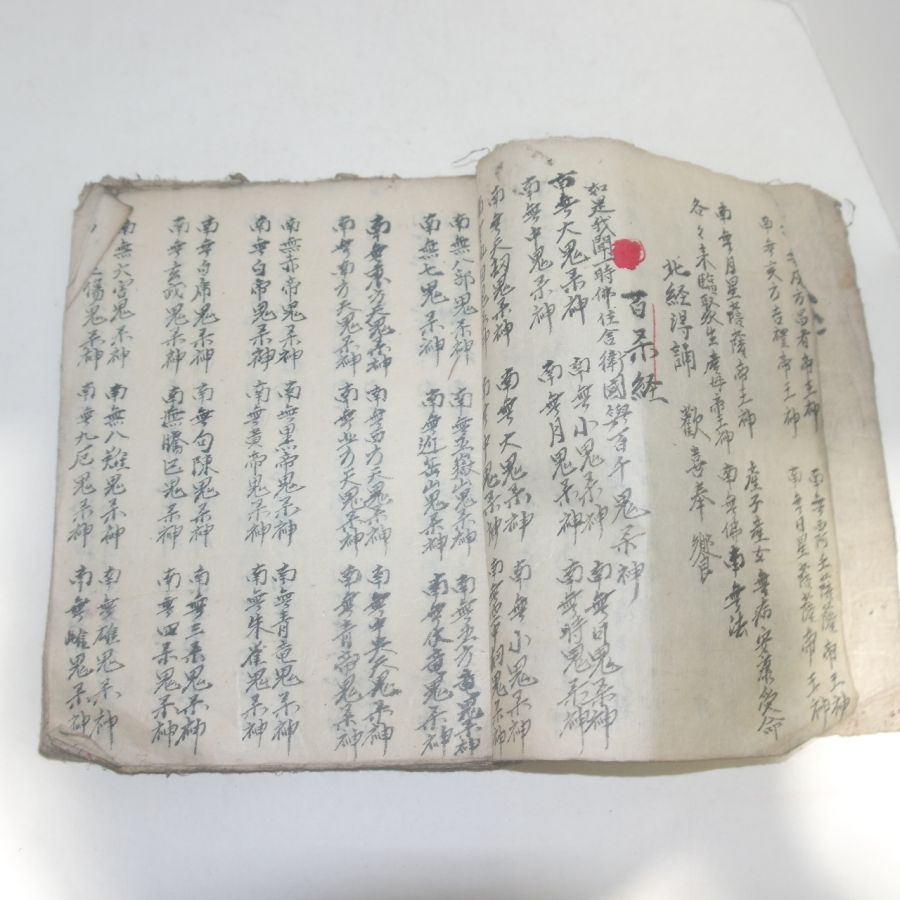 南無亥方吉禮帝王神
南無月星菩薩帝王神 産子産女無病安康受命
各々来臨聚生産母帝王神 南無佛 南無法
北経得誦 歡喜奉饗
百杀経
如是我聞時佛住舍衛國與百千鬼杀神
南無大鬼杀神 南無小鬼杀神 南無日鬼杀神
南無中鬼杀神 南無月鬼杀神 南無時鬼杀神
南無天朝鬼杀神 南無大鬼杀神 南無小鬼杀神
南無八部鬼杀神 南無五嶽山鬼杀神 南無五方竜鬼杀神
南無七鬼杀神 南無近岳山鬼杀神 南無伏竜鬼杀神
南無東方天鬼杀神 南無西方天鬼杀神 南無中央天鬼杀神
南無南方天鬼杀神 南無北方天鬼杀神 南無青帝鬼杀神
南無赤帝鬼杀神 南無黒帝鬼杀神 南無青竜鬼杀神
南無白帝鬼杀神 南無黄帝鬼杀神 南無朱雀鬼杀神
南無白虎鬼杀神 南無句陳鬼杀神 南無三杀鬼杀神
南無玄武鬼杀神 南無騰巳鬼杀神 南無四杀鬼杀神
南無六害鬼杀神 南無八難鬼杀神 南無雄鬼杀神
傷鬼杀神 南無九厄鬼杀神 南無雌鬼杀神